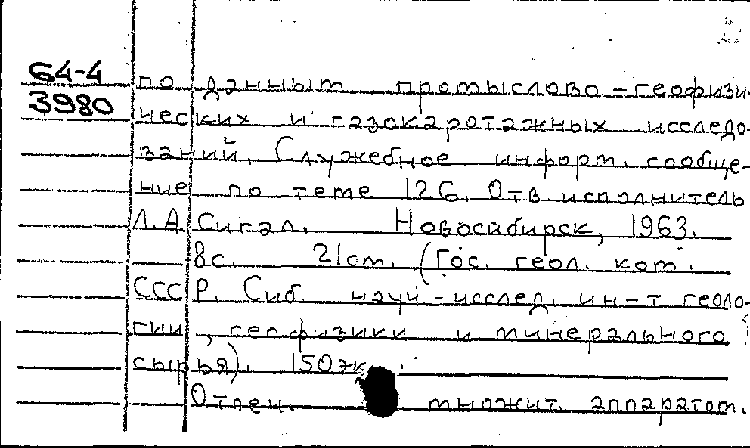 64-4 по данным промыслово-геофизи-
3980 ческих и газокаротажных исследо-
ваний. Служебное информ. сообще-
ние по теме 126. Отв исполнитель
Л.А. Сигал. Новосибирск, 1963.
8с. 21см. (Гос. геол. ком.
СССР. Сиб науч-исслед. ин-т геоло-
гии, геофизики и минерального
сырья). 150 эк
Отпеч. множит. аппаратом.